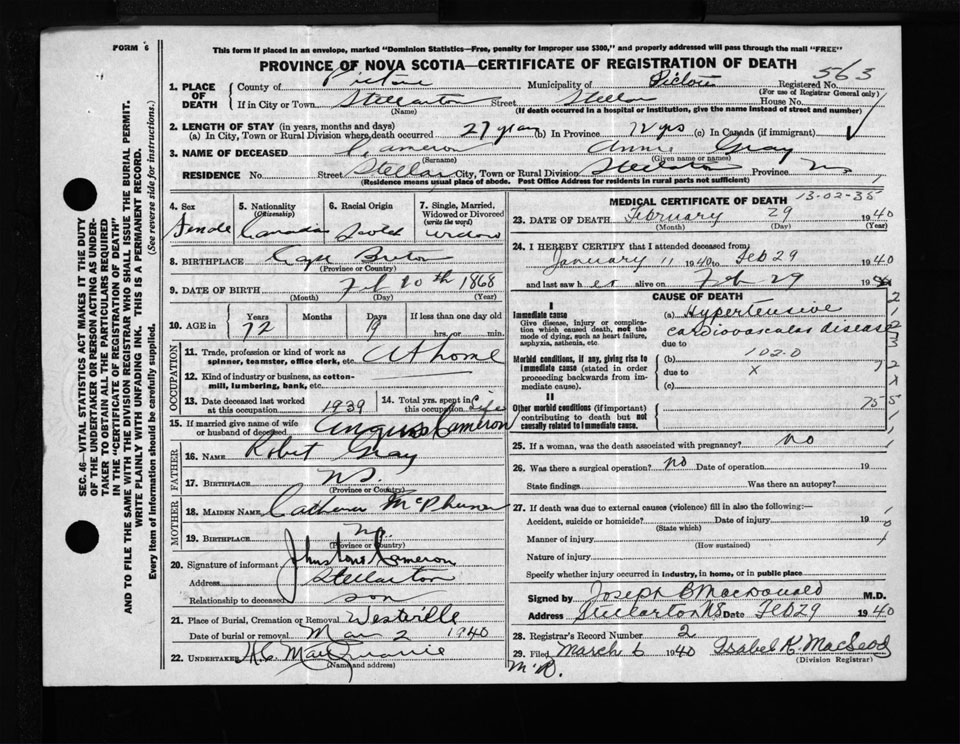 FORM 6
This form if placed in an envelope, marked "Dominion Statistics—Free, penalty for improper use $300," and properly addressed will pass through the mail "FREE"
PROVINCE OF NOVA SCOTIA—CERTIFICATE OF REGISTRATION OF DEATH
563
SEC. 46—VITAL STATISTICS ACT MAKES IT THE DUTY
OF THE UNDERTAKER OR PERSON ACTING AS UNDER-
TAKER TO OBTAIN ALL THE PARTICULARS REQUIRED
IN THE "CERTIFICATE OF REGISTRATION OF DEATH"
AND TO FILE THE SAME WITH THE DIVISION REGISTRAR WHO SHALL ISSUE THE BURIAL PERMIT.
WRITE PLAINLY WITH UNFADING INK. THIS IS A PERMANENT RECORD.
Every item of Information should be carefully supplied. (See reverse side for instructions.)
1. PLACE OF DEATH County of Pictou Municipality of Pictou Registered No.
(For use of Registrar General only)
If in City or Town Stellarton Street Stellar House No.
(Name) (If death occurred in a hospital or institution, give the name instead of street and number)
2. LENGTH OF STAY (in years, months and days)
(a) In City, Town or Rural Division where death occurred 27 years (b) In Province 72 yrs (c) In Canada (if immigrant)
3. NAME OF DECEASED Cameron Annie Gray
(Surname) (Given name or names)
RESIDENCE No. Street Stellar City, Town or Rural Division Stellarton Province NS
(Residence means usual place of abode. Post Office Address for residents in rural parts not sufficient)
4. Sex
Female
5. Nationality (Citizenship)
Canadian
6. Racial Origin
Scotch
7. Single, Married, Widowed or Divorced (write the word)
widow
8. BIRTHPLACE Cape Breton
(Province or Country)
9. DATE OF BIRTH Feb 10th 1868
(Month) (Day) (Year)
10. AGE in Years Months Days If less than one day old
72 19 hrs. or min.
OCCUPATION
11. Trade, profession or kind of work as spinner, teamster, office clerk, etc. At home
12. Kind of industry or business, as cotton-mill, lumbering, bank, etc.
13. Date deceased last worked at this occupation 1939
14. Total yrs. spent in this occupation Life
15. If married give name of wife or husband of deceased Angus Cameron
FATHER
16. NAME Robert Gray
17. BIRTHPLACE NS.
(Province or Country)
MOTHER
18. MAIDEN NAME Catherine
19. BIRTHPLACE
(Province or Country)
20. Signature of informant Cameron
Address Stellarton
Relationship to deceased son
21. Place of Burial, Cremation or Removal Westville
Date of burial or removal Mar 2 1940
22. UNDERTAKER
(Name and address)
MEDICAL CERTIFICATE OF DEATH 13-02-35
23. DATE OF DEATH February 29 1940
(Month) (Day) (Year)
24. I HEREBY CERTIFY that I attended deceased from
January 11 1940 to Feb 29 1940
and last saw her alive on Feb 29 19
CAUSE OF DEATH
I
Immediate cause
Give disease, injury or complication which caused death, not the mode of dying, such as heart failure, asphyxia, asthenia, etc.
(a) Hypertensive
cardiovascular disease
due to
Morbid conditions, if any, giving rise to immediate cause (stated in order proceeding backwards from immediate cause).
(b) 102.0
due to X
(c)
II
Other morbid conditions (if important) contributing to death but not causally related to immediate cause.
25. If a woman, was the death associated with pregnancy? no
26. Was there a surgical operation? no Date of operation 19
State findings Was there an autopsy?
27. If death was due to external causes (violence) fill in also the following:—
Accident, suicide or homicide? Date of injury 19
(State which)
Manner of injury
(How sustained)
Nature of injury
Specify whether injury occurred in industry, in home, or in public place
Signed by Joseph B MacDonald M.D.
Address Stellarton NS Date Feb 29 1940
28. Registrar's Record Number 2
29. Filed March 6 1940 Isabel R. MacLeod
(Division Registrar)